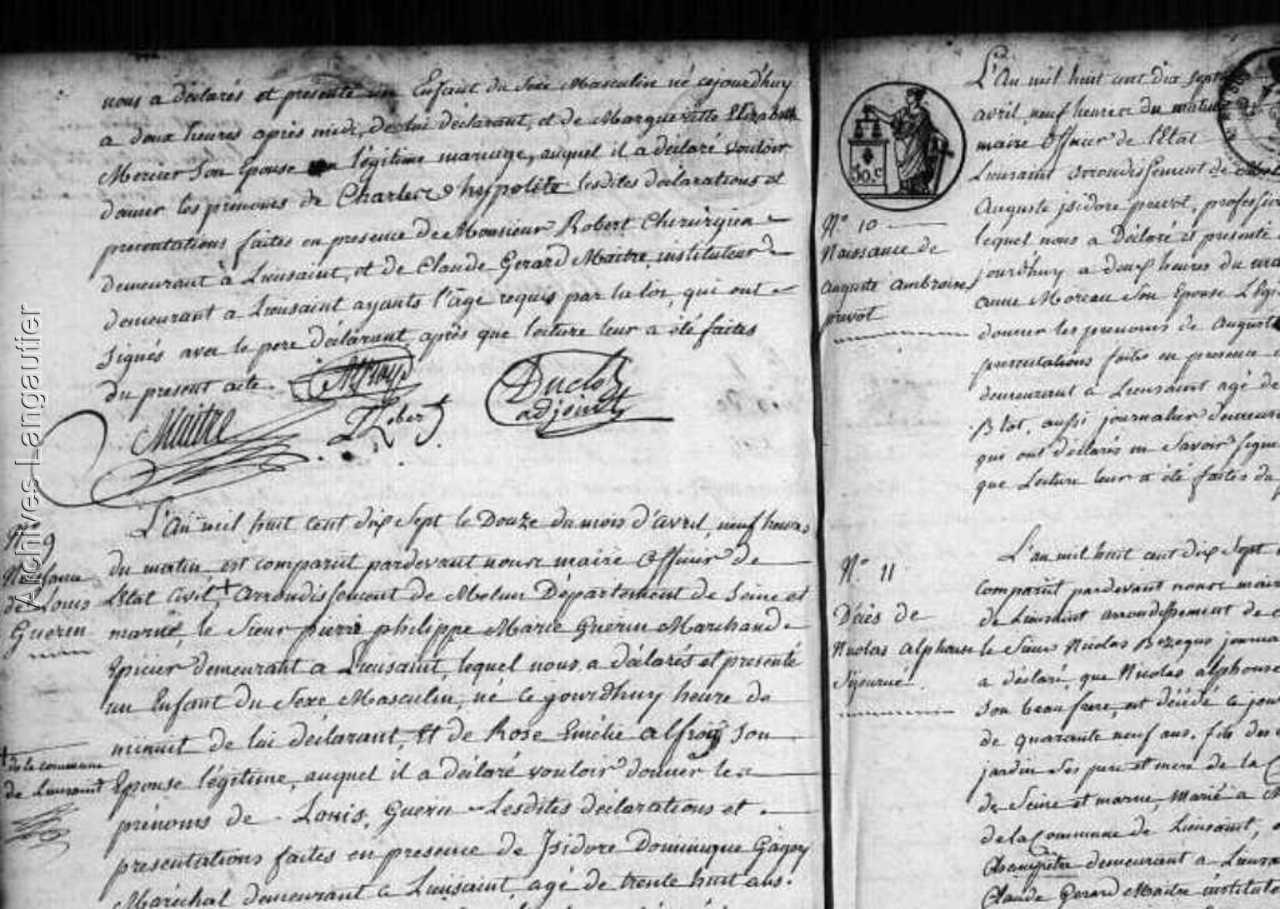 nous a déclarés et presenté un Enfant du Sexe Masculin né cejourdhuy
a deux heures après midi, de lui déclarant, et de Margueritte Elizabeth
Mercier Son Epouse en légitime mariage, auquel il a déclaré vouloir
donner les prénoms de Charles hypolite lesdites déclarations et
presentations faites en presence de Monsieur Robert Chirurgien
demeurant à Lieusaint, et de Claude Gerard Maitre, instituteur
demeurant a Lieusaint ayants l'âge requis par la loi, qui ont
signés avec le pere déclarant, après que lecture leur a été faites
du present acte.
Maitre
Duclos
adjoint
N° 9
Naissance
de Louis
Guerin
L'An mil huit cent dix Sept le Douze du mois d'avril, neuf heures
du matin est comparut pardevant nous maire Officier de
L'Etat Civil, + arrondissement de Melun Département de Seine et
marne, le Sieur pierre philippe Marie Guerin Marchand
Epicier demeurant a Lieusaint, lequel nous a déclarés et presenté
un Enfant du Sexe Masculin, né ce jourdhuy heure de
minuit de lui déclarant, Et de Rose Emélie alfroy son
Epouse légitime, auquel il a déclaré vouloir donner les
prénoms de Louis, Guerin Lesdites déclarations et
presentations faites en presence de Isidore Dominique Gagny
Maréchal demeurant a Lieusaint, agé de trente huit ans.
+ de la commune
de Lieusaint
50 c
N° 10
Naissance de
Auguste ambroise
prevot
L'An mil huit cent dix sept
avril neuf heures du matin
maire Officier de l'Etat
Lieusaint arrondissement de
Auguste jsidore prevot, profession
lequel nous a Déclaré et presenté
jourdhuy a deux heures du
anne Moreau Son Epouse
donner les prenoms de auguste
presentations faites en presence
demeurant a Lieusaint agé de
Blot, aussi journalier demeurant
qui ont déclarés ne Savoir signer
que Lecture leur a été faites du
N° 11
Décès de
Nicolas alphonse
Séjourné
L'an mil huit cent dix Sept
comparut pardevant nous maire
de Lieusaint arrondissement de
le Sieur Nicolas Bezegus
a déclaré, que Nicolas alphonse
son beau frere, est décédé ce jour
de quarante neuf ans, fils de
jardin Ses pere et mere de la
de Seine et marne, Marié a
de la Commune de Lieusaint,
Champêtre demeurant a Lieusaint
Claude Gerard Maitre instituteur
Archives Langautier